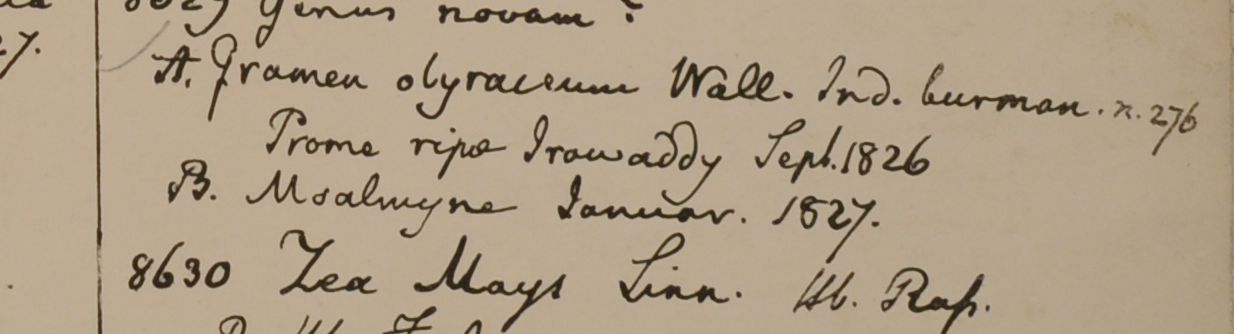 8629 Genus novam?
A. Gramen olyraceum Wall. Ind. burman. n. 276
Prome ripæ Irawaddy Sept. 1826
B. Moalmyne Januar. 1827.
8630 Zea Mays Linn. Hb.